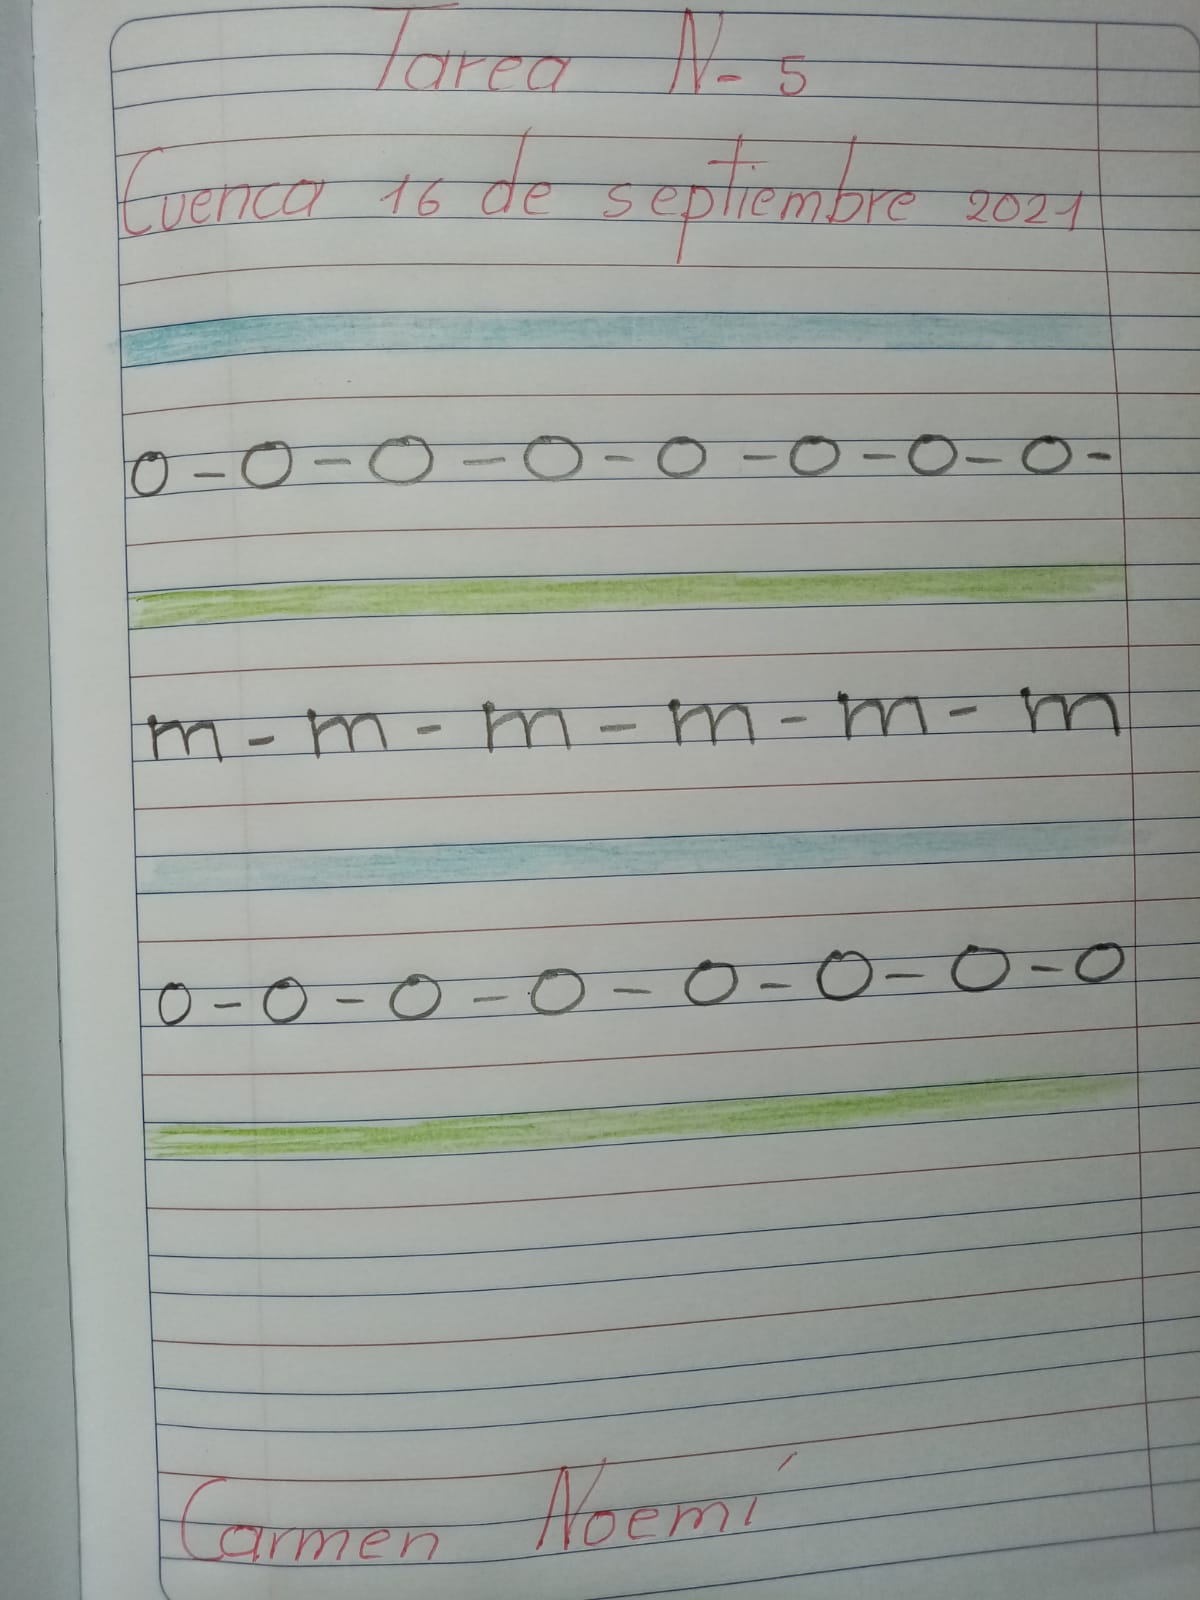 Tarea N- 5
Cuenca 16 de septiembre 2021
o - o - o - o - o - o - o - o -
m - m - m - m - m - m
o - o - o - o - o - o - o - o
Carmen Noemí